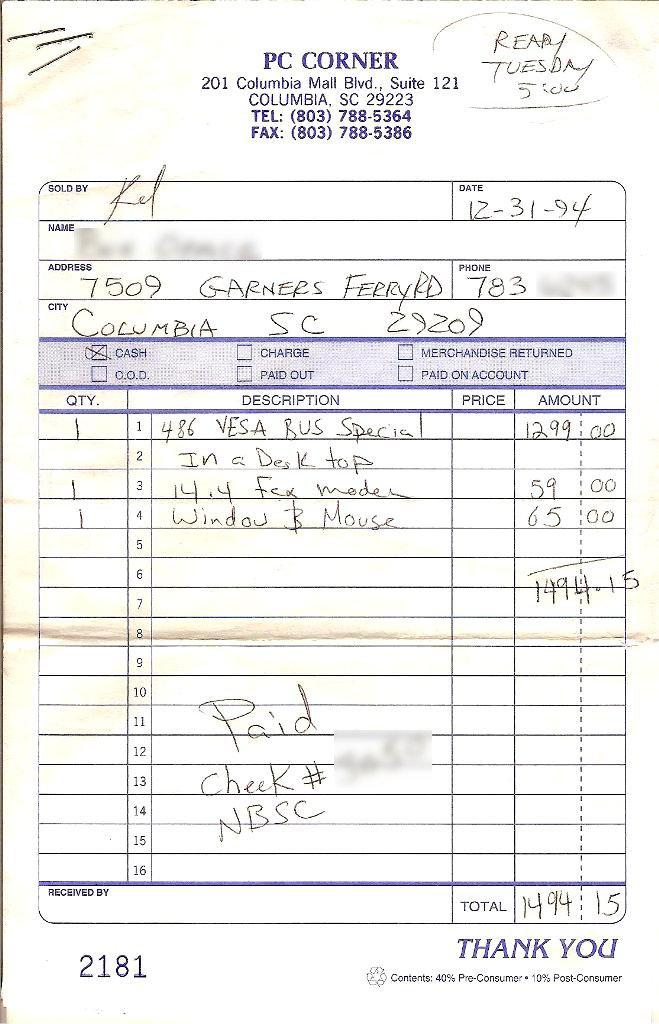 READY
TUESDAY
5:00
PC CORNER
201 Columbia Mall Blvd., Suite 121
COLUMBIA, SC 29223
TEL: (803) 788-5364
FAX: (803) 788-5386
SOLD BY DATE
12-31-94
NAME
ADDRESS 7509 GARNERS FERRY RD PHONE 783
CITY COLUMBIA SC 29209
CASH CHARGE MERCHANDISE RETURNED
C.O.D. PAID OUT PAID ON ACCOUNT
QTY. DESCRIPTION PRICE AMOUNT
1 1 486 VESA BUS Special 1299 00
2 In a Desk top
1 3 14.4 Fax modem 59 00
1 4 Window & Mouse 65 00
5
6
1494.15
7
8
9
10
11 Paid
12
13 Check #
14 NBSC
15
16
RECEIVED BY TOTAL 1494 15
THANK YOU
2181 Contents: 40% Pre-Consumer • 10% Post-Consumer